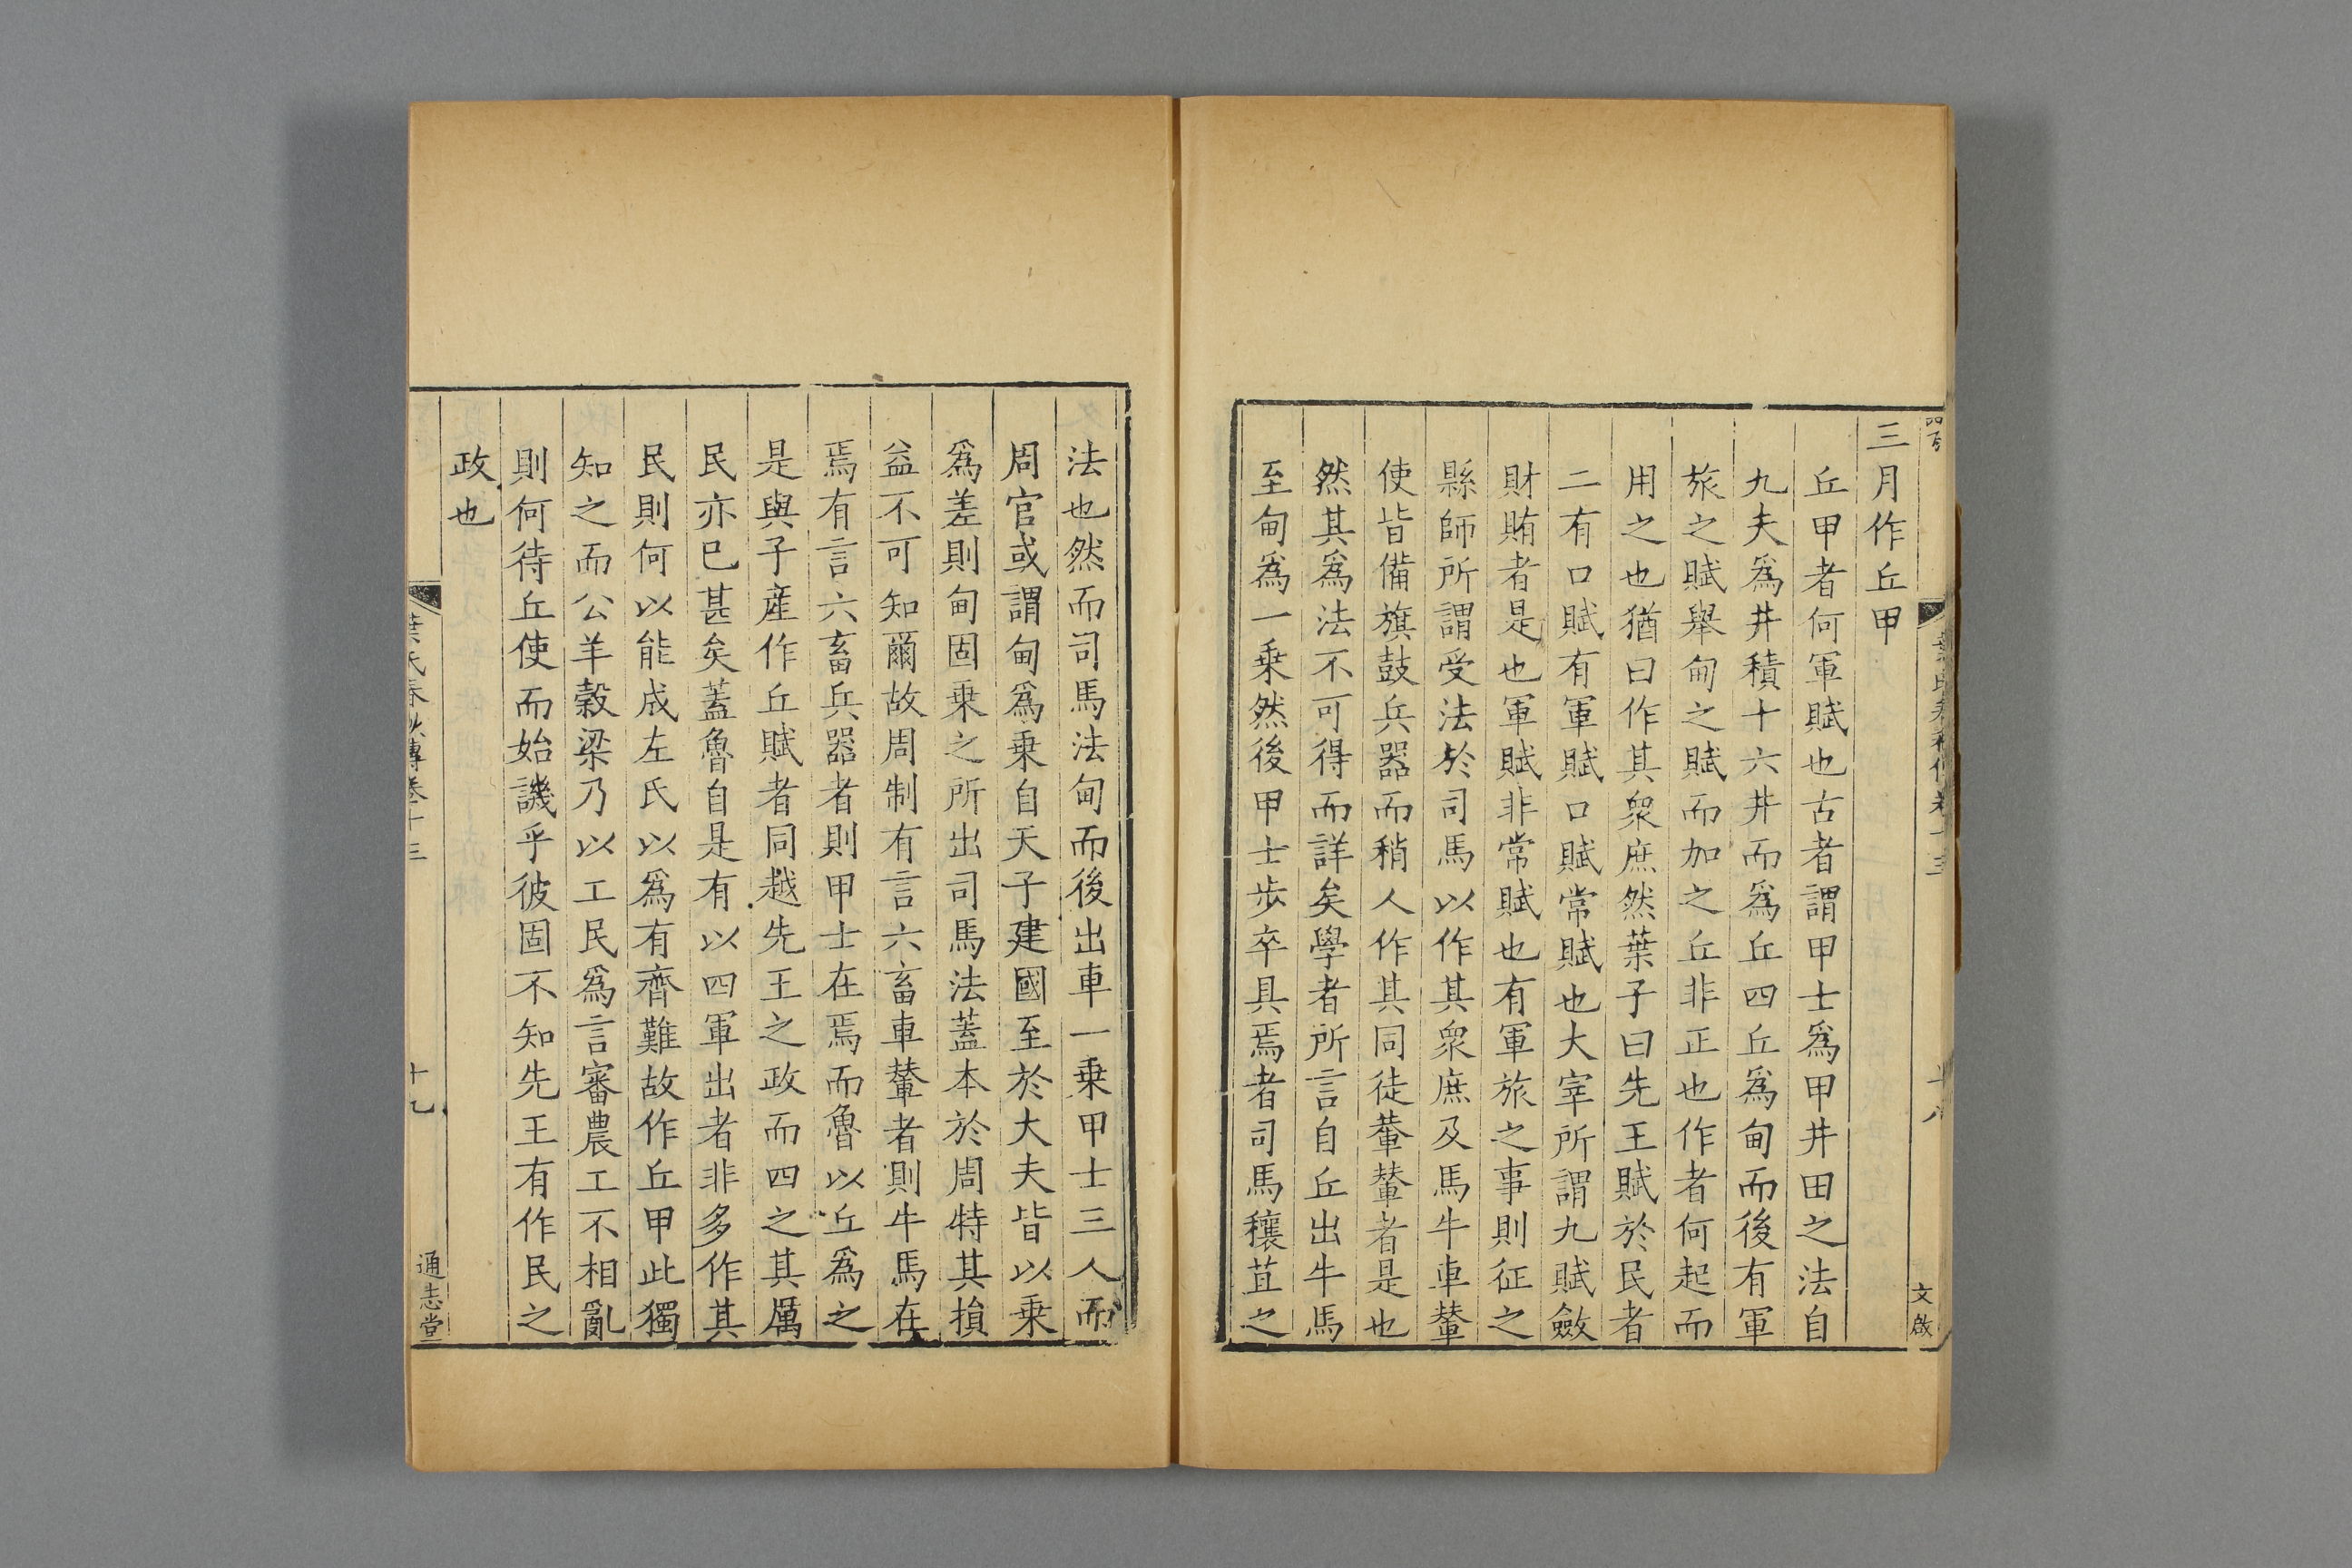 三月作丘甲
丘甲者何軍賦也古者謂甲士爲甲井田之法自
九夫爲井積十六井而爲丘四丘爲甸而後有軍
旅之賦舉甸之賦而加之丘非正也作者何起而
用之也猶曰作其衆庶然葉子曰先王賦於民者
二有口賦有軍賦口賦常賦也大宰所謂九賦斂
財賄者是也軍賦非常賦也有軍旅之事則征之
縣師所謂受法於司馬以作其衆庶及馬牛車輦
使皆備旗鼓兵器而稍人作其同徒輂輦者是也
然其爲法不可得而詳矣學者所言自丘出牛馬
至甸爲一乗然後甲士步卒具焉者司馬穰苴之
文啟
法也然而司馬法甸而後出車一乗甲士三人而
周官或謂甸爲乗自天子建國至於大夫皆以乗
爲差則甸固乗之所出司馬法蓋本於周特其損
益不可知爾故周制有言六畜車輦者則牛馬在
焉有言六畜兵器者則甲士在焉而魯以丘爲之
是與子產作丘賦者同越先王之政而四之其厲
民亦已甚矣蓋魯自是有以四軍出者非多作其
民則何以能成左氏以爲有齊難故作丘甲此獨
知之而公羊穀梁乃以工民爲言審農工不相亂
則何待丘使而始譏乎彼固不知先王有作民之
政也
葉氏春秋傳卷十三
十九
通志堂